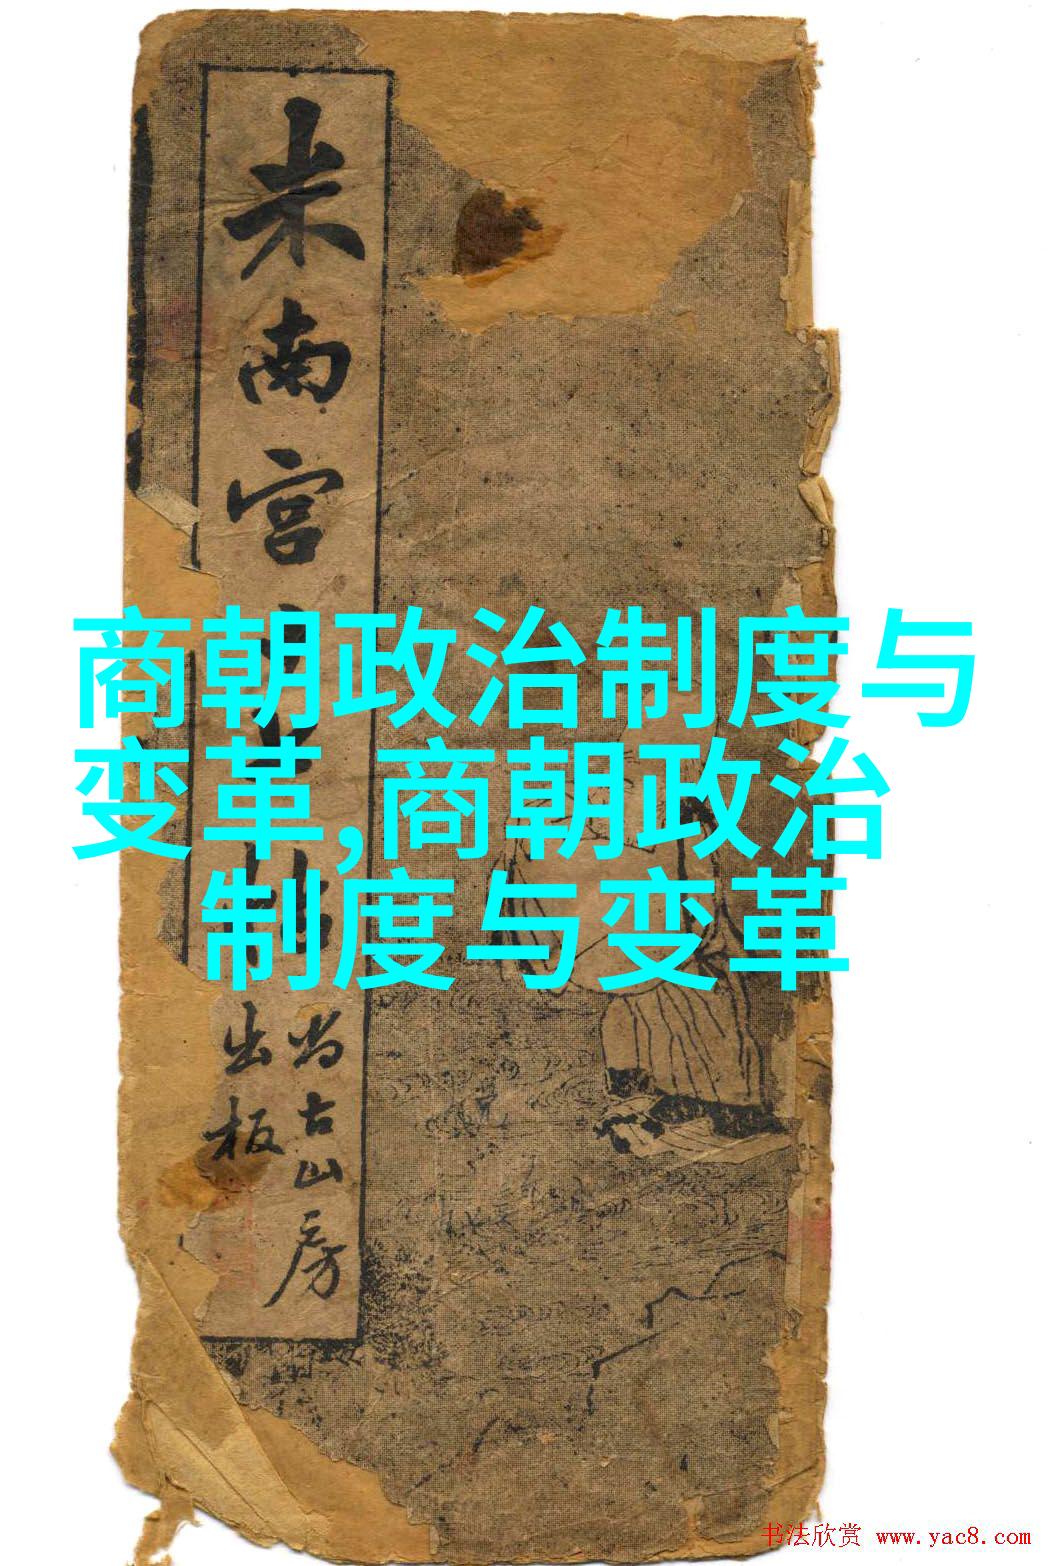 商朝政治制度与
变革,商朝政治
制度与变革
米南宮
尚古山房
出板
书法欣赏 www.yac8.com